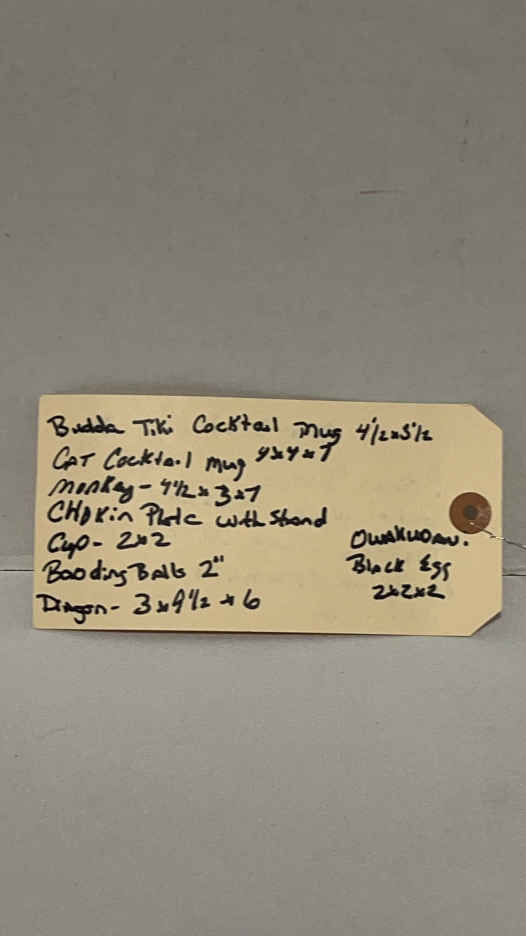 Budda Tiki Cocktail Mug 4 1/2 x 5 1/2
CAT Cocktail Mug 4x4x7
Monkey - 4 1/2 x 3 x 7
CHOKin Plate with Stand
Cup - 2x2
Baoding Balls 2"
Dragon - 3 x 9 1/2 x 6
OWAKUDANI.
Black Egg
2x2x2